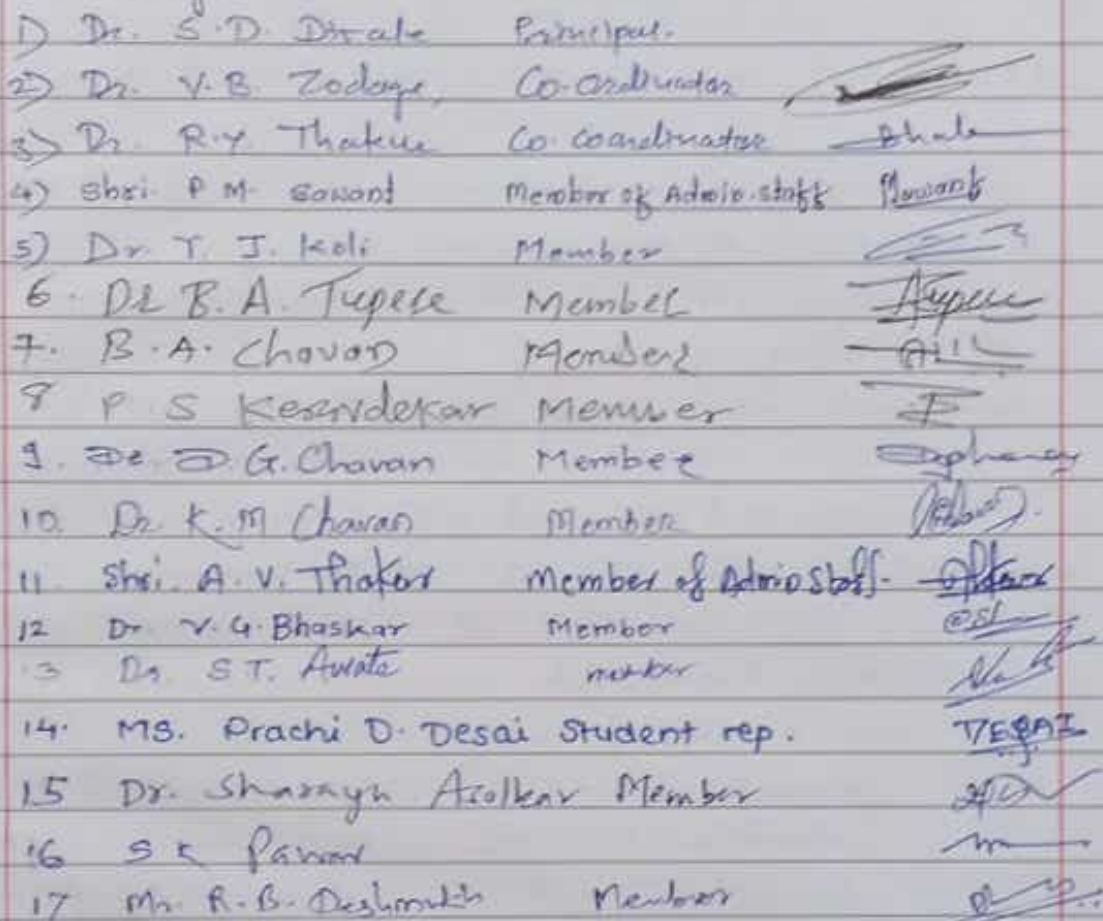 1) Dr. S.D. Dirale Principal.
2) Dr. V.B. Zodage, Co-ordinator
3) Dr. R.Y. Thakur Co. coordinator
4) Shri. P M. Sawant Member of Admin. staff
5) Dr T. J. Koli Member
6. Dr B. A. Tupere Member
7. B. A. Chavan Member
8 P S Kerndekar Member
9. Dr D. G. Chavan Member
10. Dr. K. M Chavan Member
11 Shri. A. V. Thakor Member of Admin Staff.
12 Dr. V. G. Bhaskar Member
13 Dr S T. Awate member
14. MS. Prachi D. Desai Student rep. DESAI
15 Dr. Sharayu Asolkar Member
16 S K Pawar
17 Mr. R. B. Deshmukh Member